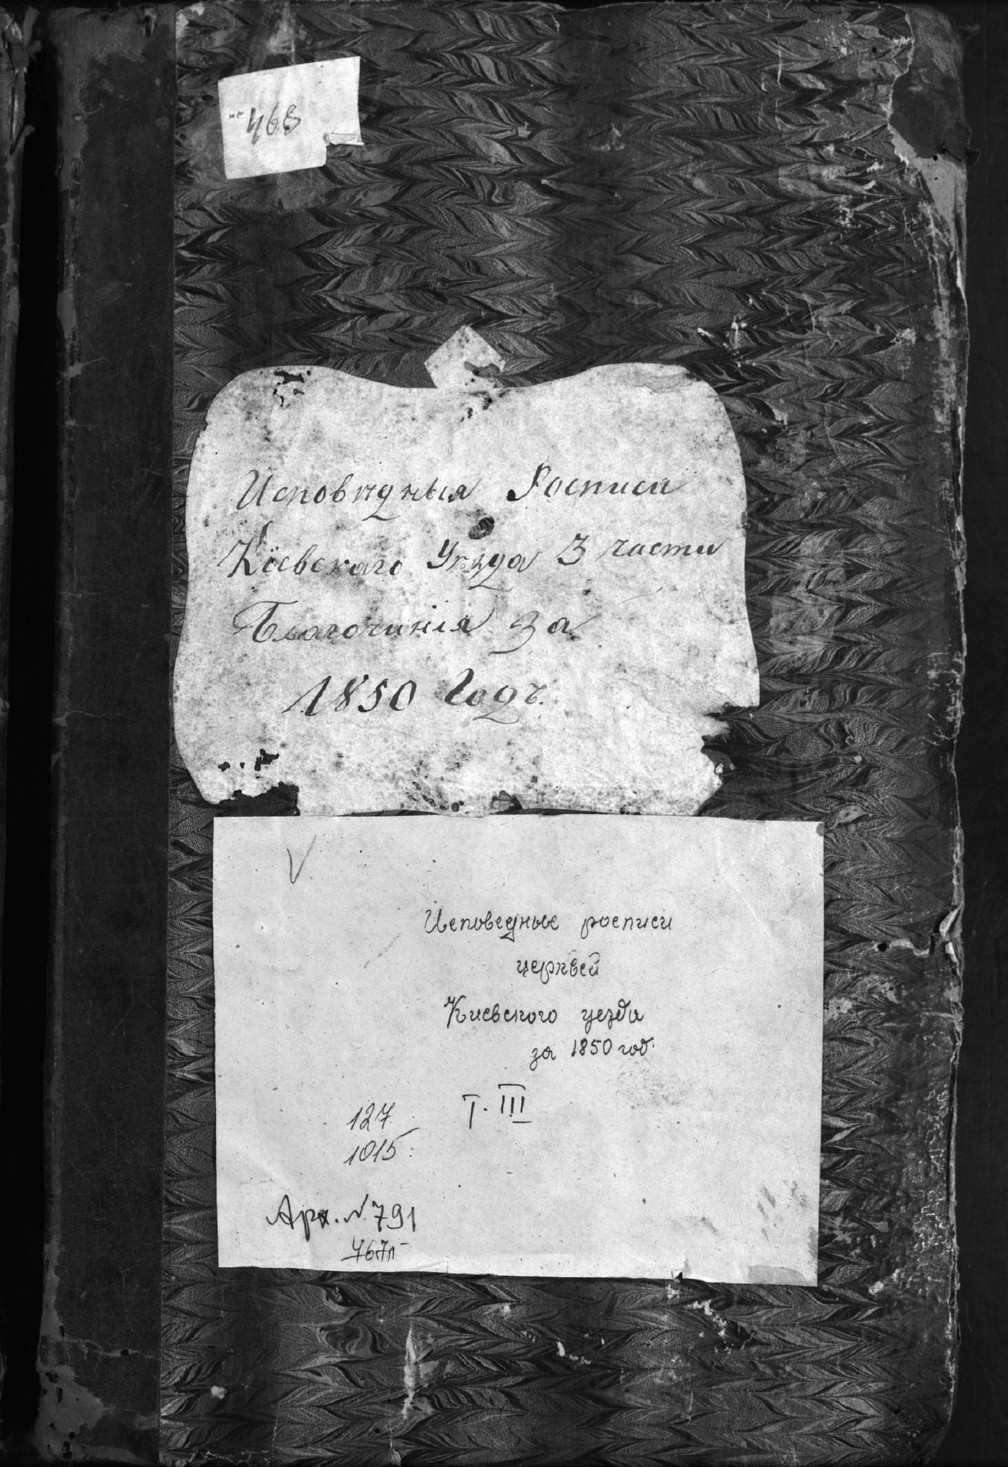 468
Исповѣдныя Росписи
Кіевскаго Уѣзда 3 части
Благочинія за
1850 Годъ.
Исповедные росписи
церквей
Киевского уезда
за 1850 год.
Т. III
127
1015
Арх. № 791
767л